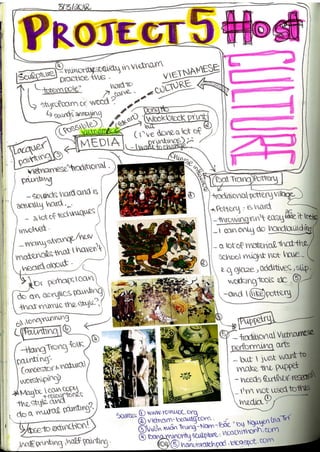 3/5/2012
PROJECT 5 Host
CULTURE
VIETNAMESE
CULTURE
Sculpture
- minority society in Vietnam
practice this.
"totem pole"
hard to
carve.
styrofoam or wood
sounds annoying
(possible)
MEDIA
Dong Ho
Woodblock print
but
(I've done a lot of
printings)
Lacquer
painting
- Vietnamese traditional
painting
- sounds hard and is
actually hard.
- a lot of techniques
involved.
- many strange/new
materials that I haven't
heard about.
Or perhaps I can
do an acrylics painting
that mimic the style?
Painting
- Hang Trong folk
painting:
(ancestor & natural
worshiping)
Maybe I can copy
the style and
do a mutual painting?
close to extinction!
half printing, half painting
Bat Trang Pottery
traditional pottery village
Pottery - is hard
- throwing isn't easy like it looks
- I can only do handbuilding
- a lot of material that the
school might not have.
e.g. glaze, additives, slip
working tools etc
- and I like pottery
Puppetry
- traditional Vietnamese
performing arts
- but I just want to
make the puppet
- needs further research
- I'm not used to this
media!
Sources:
① www.romvec.org
② vietnam-beauty.com
③ Hien
④
⑤ hanoiscratchpad.blogspot.com